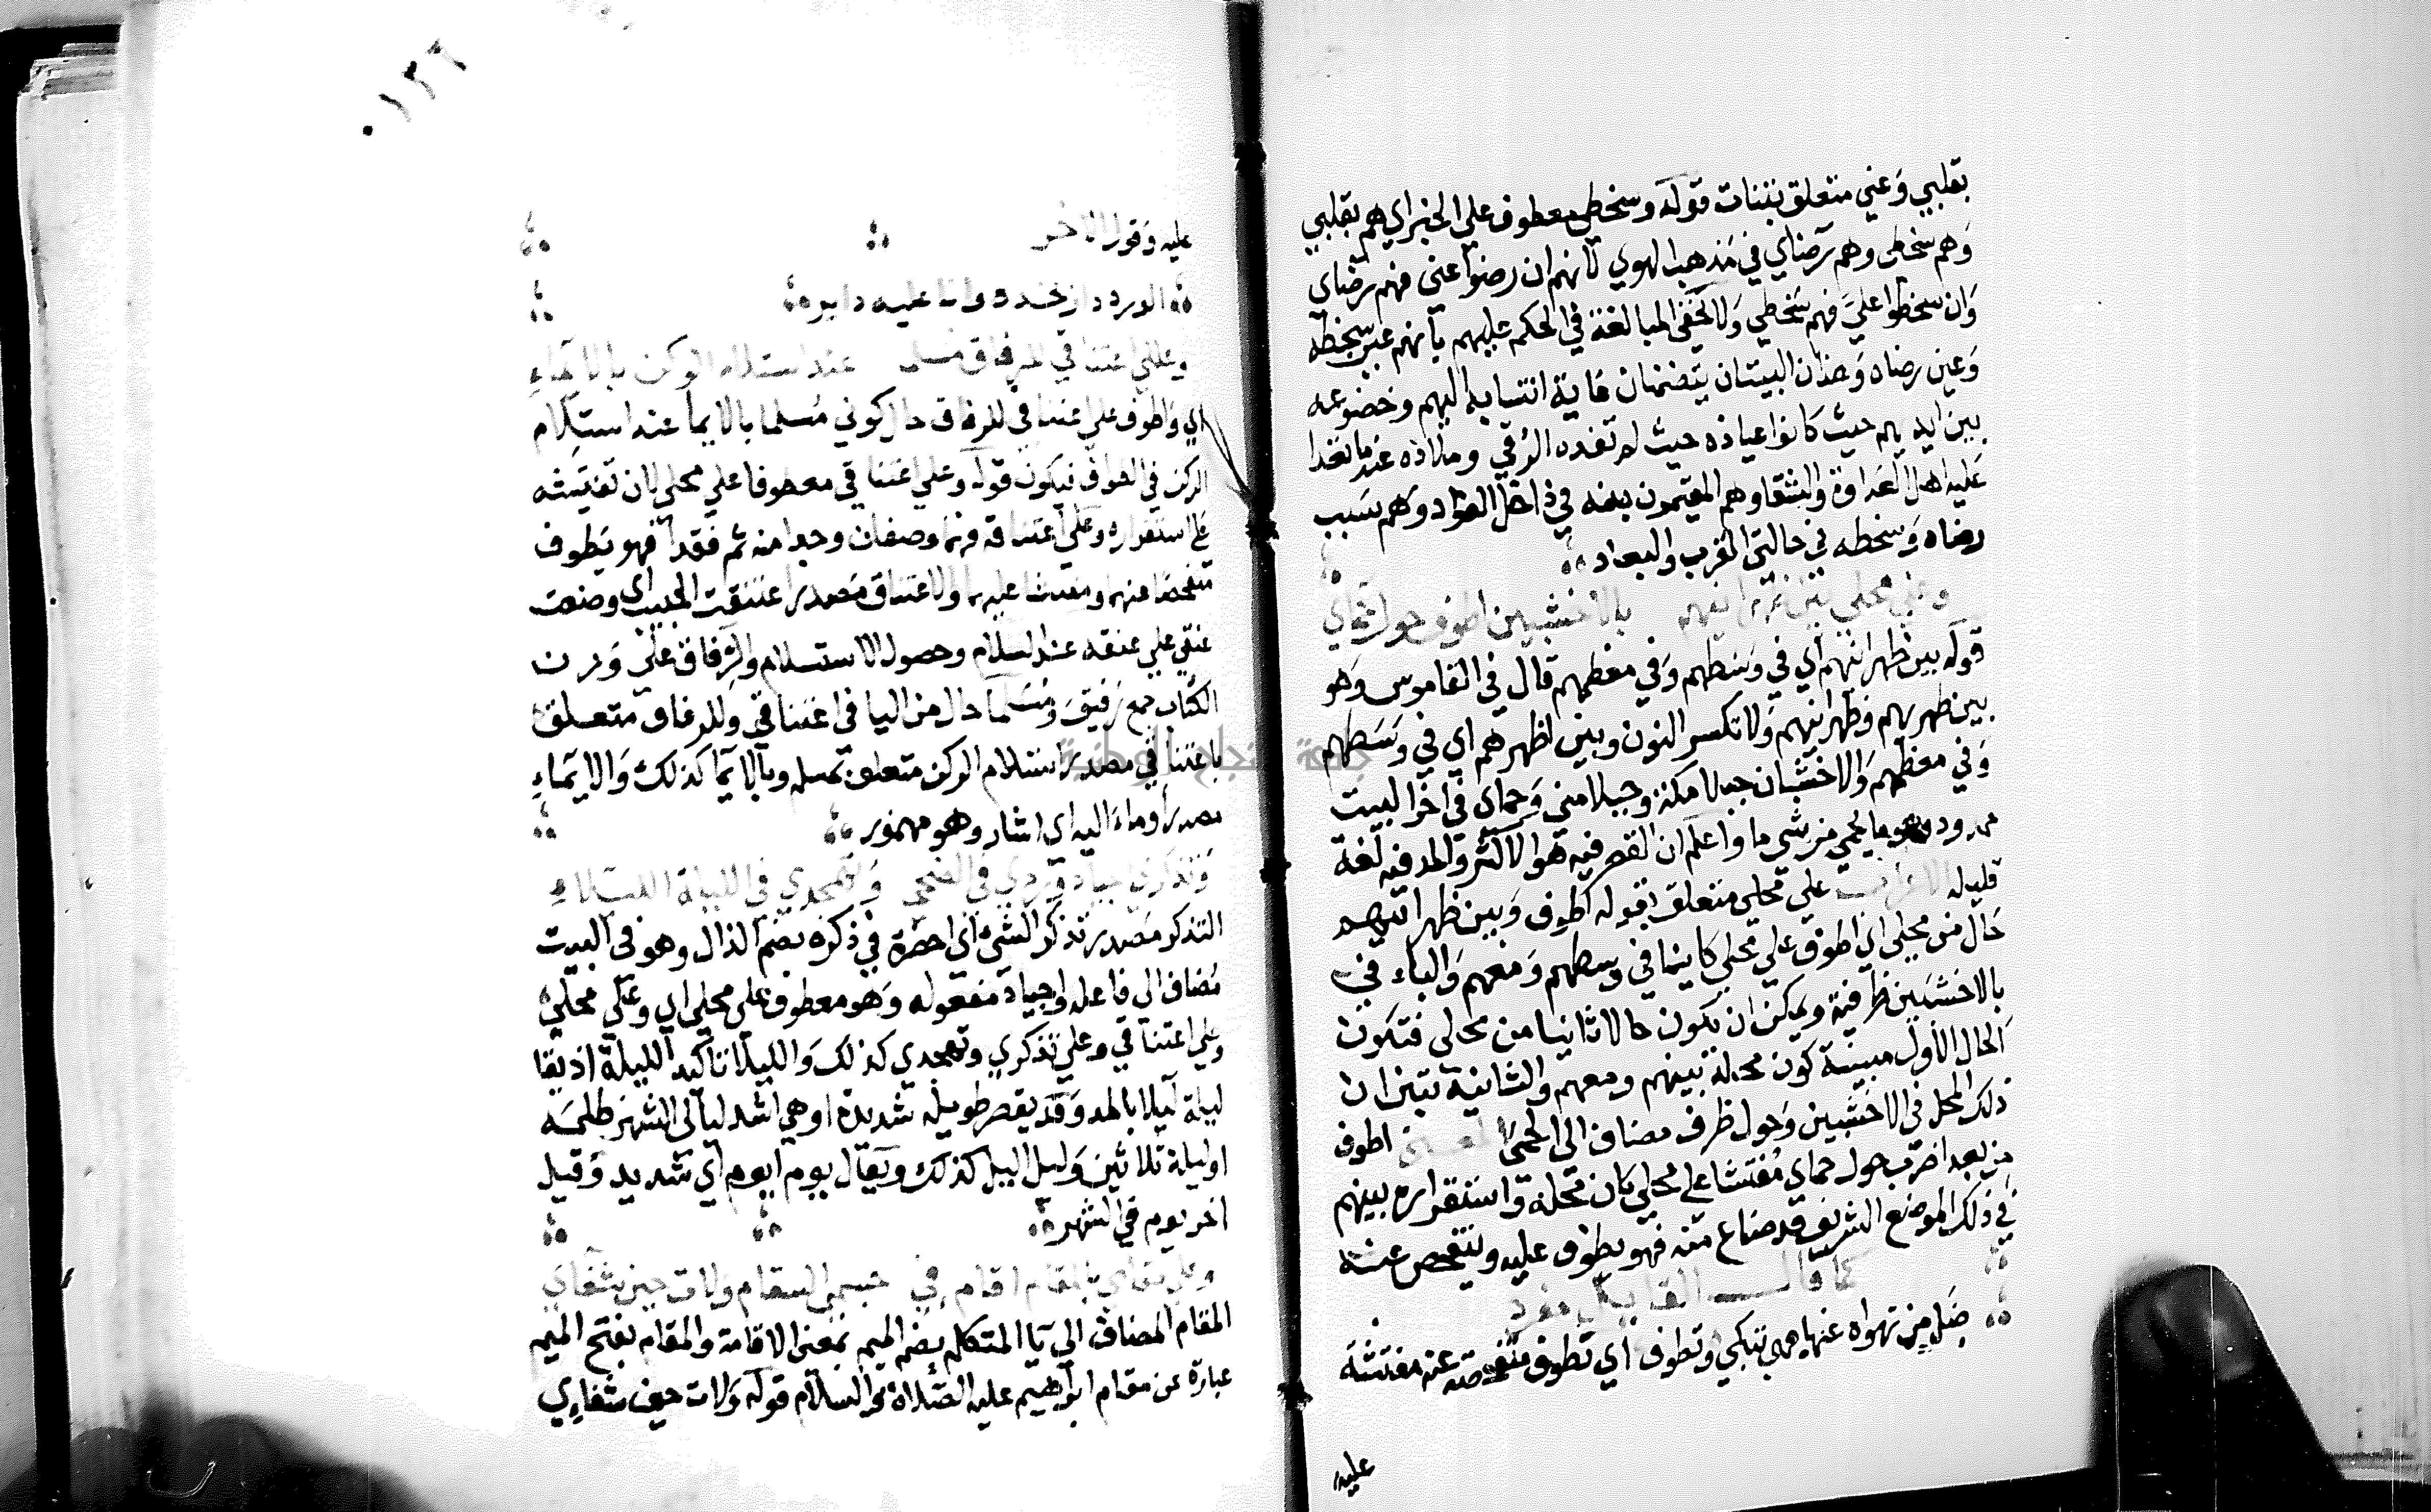 بقلبي وعني متعلق بتنات قوله وسخطي معطوف علي الخبر اي هم بقلبي
وهم سخطي وهم رضاي في مذهب الهوي لانهم ان رضوا عني فهم رضاي
وان سخطوا علي فهم سخطي ولا تخفي المبالغة في الحكم عليهم بانهم عين سخطه
وعين رضاه وهذان البيتان يتضمنان غاية انتسابه اليهم وخضوعه
بين ايديهم حيث كانوا عياذه حيث لم تفده الرقي وملاذه عندما تعدا
عليه اهل العداوة والشقا وهم المقيمون منه في داخل الفؤاد وهم سبب
رضاه وسخطه في حالتي القرب والبعاد
وعلي محلي بين ظهرانيهم بالاخشبين اطوف حول حماي
قوله بين ظهرانيهم اي في وسطهم وفي معظمهم قال في القاموس وهو
بين ظهريهم وظهرانيهم ولا تكسر النون وبين اظهرهم اي في وسطهم
وفي معظمهم والاخشبان جبلا مكة وجبلا مني وحماي في اخر البيت
ممدود وهو ما يحمي من شي ما واعلم ان القصر فيه هو الاكثر والمد فيه لغة
قليلة الاعراب علي محلي متعلق بقوله اطوف وبين ظهرانيهم
حال من محلي اي اطوف علي محلي كاينا في وسطهم ومعهم والباء في
بالاخشبين ظرفية ويمكن ان يكون حالا ثانيا من محلي فتكون
الحال الاول مبينة كون محله بينهم ومعهم والثانية تبين ان
ذلك المحل في الاخشبين وحول ظرف مضاف الي الحمي المعني اطوف
من بعد اضرب حول حماي مفتشا علي محلي كان محله واستقراره بينهم
في ذلك الموضع الشريف قد ضاع منه فهو يطوف عليه ويتفحص عنه
كما قال القايل مفرد
ضل من تهواه عنها هي تبكي وتطوف اي تطوف متفحصة عنه مفتشة
عليه
١٣٦
عليه وقول الاخر
الورد دار بخده وانا عليه داير
وعلي اعتناقي للرفاق مسلما عند استلام الركن بالايماء
اي واطوف علي اعتناقي للرفاق حال كوني مسلما بالايما عند استلام
الركن في الطواف فيكون قوله وعلي اعتناقي معطوفا علي محلي كان تفتيشه
علي استقراره وعلي اعتناقه فهما وصفان وجدا منه ثم فقدا فهو يطوف
متفحصا عنهما ومفتشا عليهما والاعتناق مصدر اعتنقت الحبيب اي وضعت
عنقي علي عنقه عند السلام وحصول الاستسلام والرفاق علي وزن
الكتاب جمع رفيق ومسلما حال من اليا في اعتناقي وللرفاق متعلق
باعتناقي مصدر استلام الركن متعلق بمسلم وبالايما كذلك والايماء
مصدر اوماء اليه اي اشار وهو مهموز
وتذكري اجياد وردي في الضحي وتهجدي في الليلة الليلاء
التذكر مصدر تذكر الشي اي احضره في ذكره بضم الذال وهو في البيت
مضاف الي فاعله واجياد مفعوله وهو معطوف علي محلي اي وعلي محلي
وعلي اعتناقي وعلي تذكري وتهجدي كذلك والليلا تاكيد الليلة اذ يقا
ليلة ليلا بالمد وقد يقصر طويلة شديدة او هي اشد ليالي الشهر ظلمة
او ليلة ثلاثين وليل اليل كذلك ويقال يوم ايوم اي شديد وقيل
اخر يوم في الشهر
وعلي مقامي بالمقام اقام في جسمي السقام ولات حين شفائي
المقام المضاف الي يا المتكلم بضم الميم بمعني الاقامة والمقام بفتح الميم
عبارة عن مقام ابراهيم عليه الصلاة والسلام قوله ولات حين شفاي